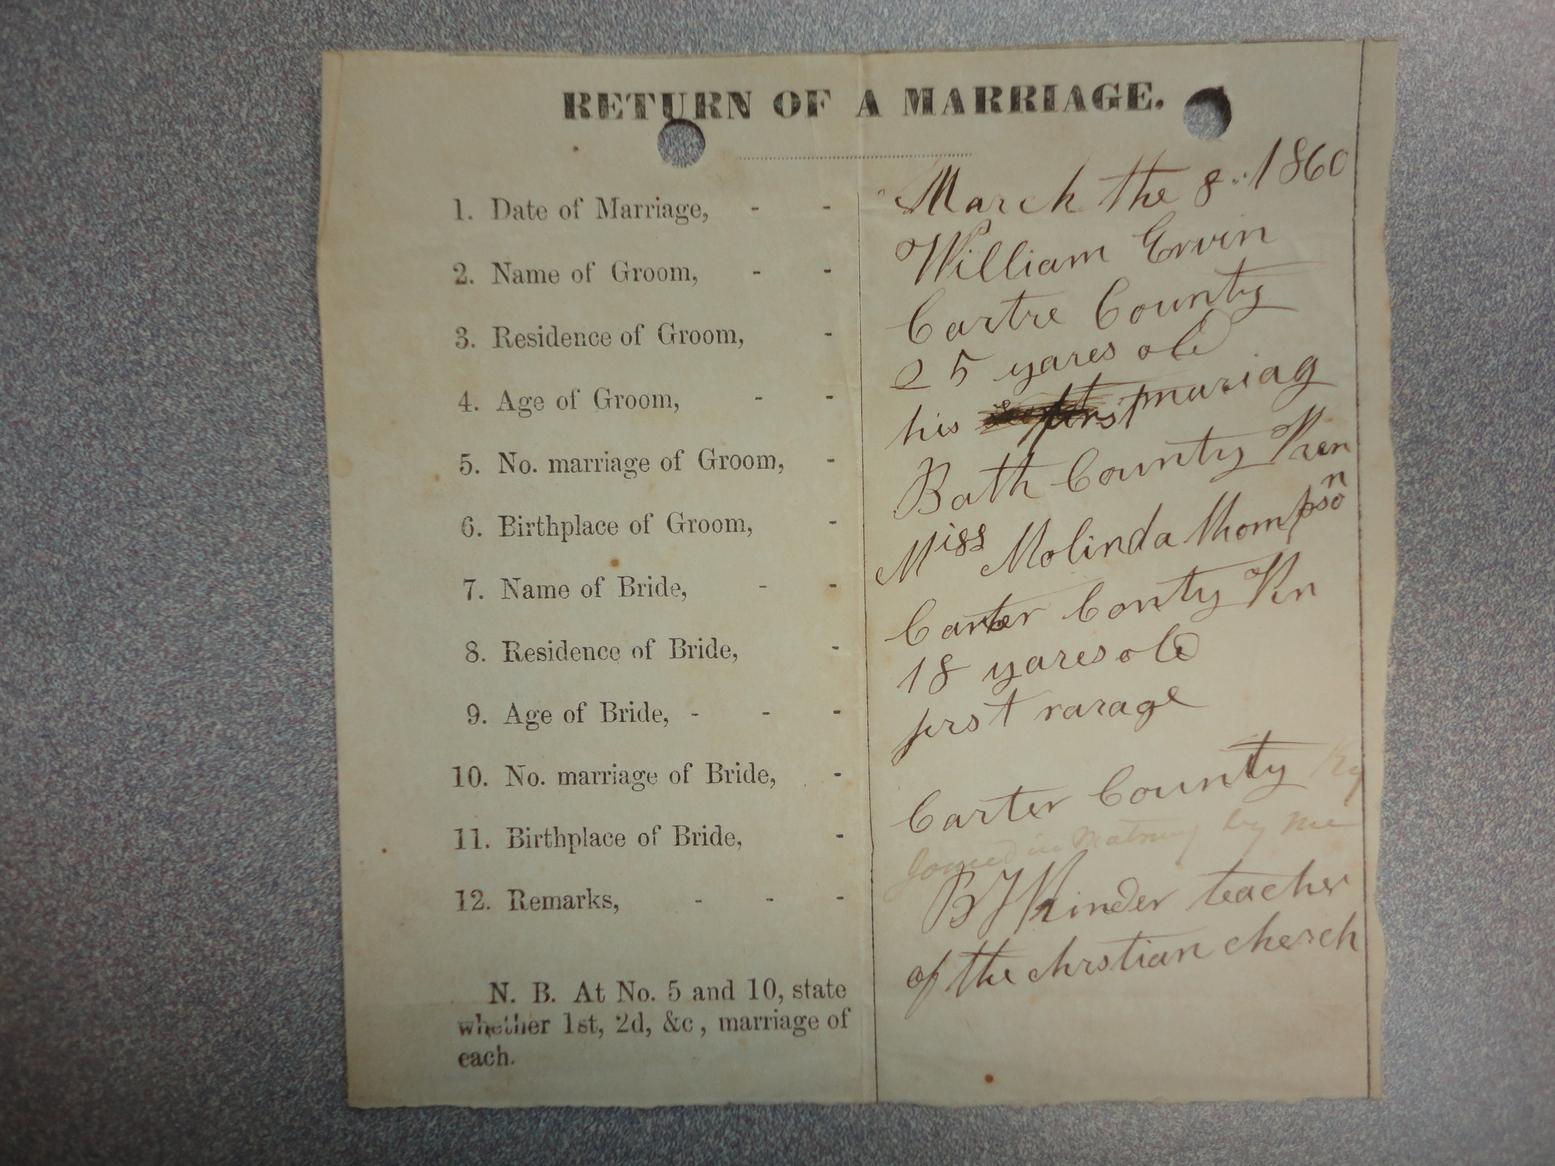 RETURN OF A MARRIAGE.
1. Date of Marriage, - - March the 8. 1860
2. Name of Groom, - - William Ervin
3. Residence of Groom, - Cartre County
4. Age of Groom, - - 25 yares old
5. No. marriage of Groom, - his first mariag
6. Birthplace of Groom, - Bath County Ken
7. Name of Bride, - - Miss Molinda Thompson
8. Residence of Bride, - Carter Conty Kn
9. Age of Bride, - - - 18 yares old
10. No. marriage of Bride, - first rarage
11. Birthplace of Bride, - Carter County Ky
12. Remarks, - - - Joined in by me
B J Kinder teacher
of the chrstian cherch
N. B. At No. 5 and 10, state
whether 1st, 2d, &c, marriage of
each.